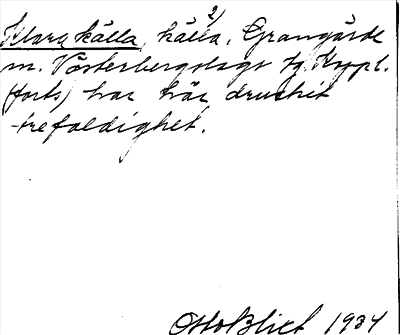 Klara källa, källa, 2)
Grangärde
m. Västerbergslags tg. Koppl.
(forts) har här druckit
trefaldighet.
Otto Blixt 1934